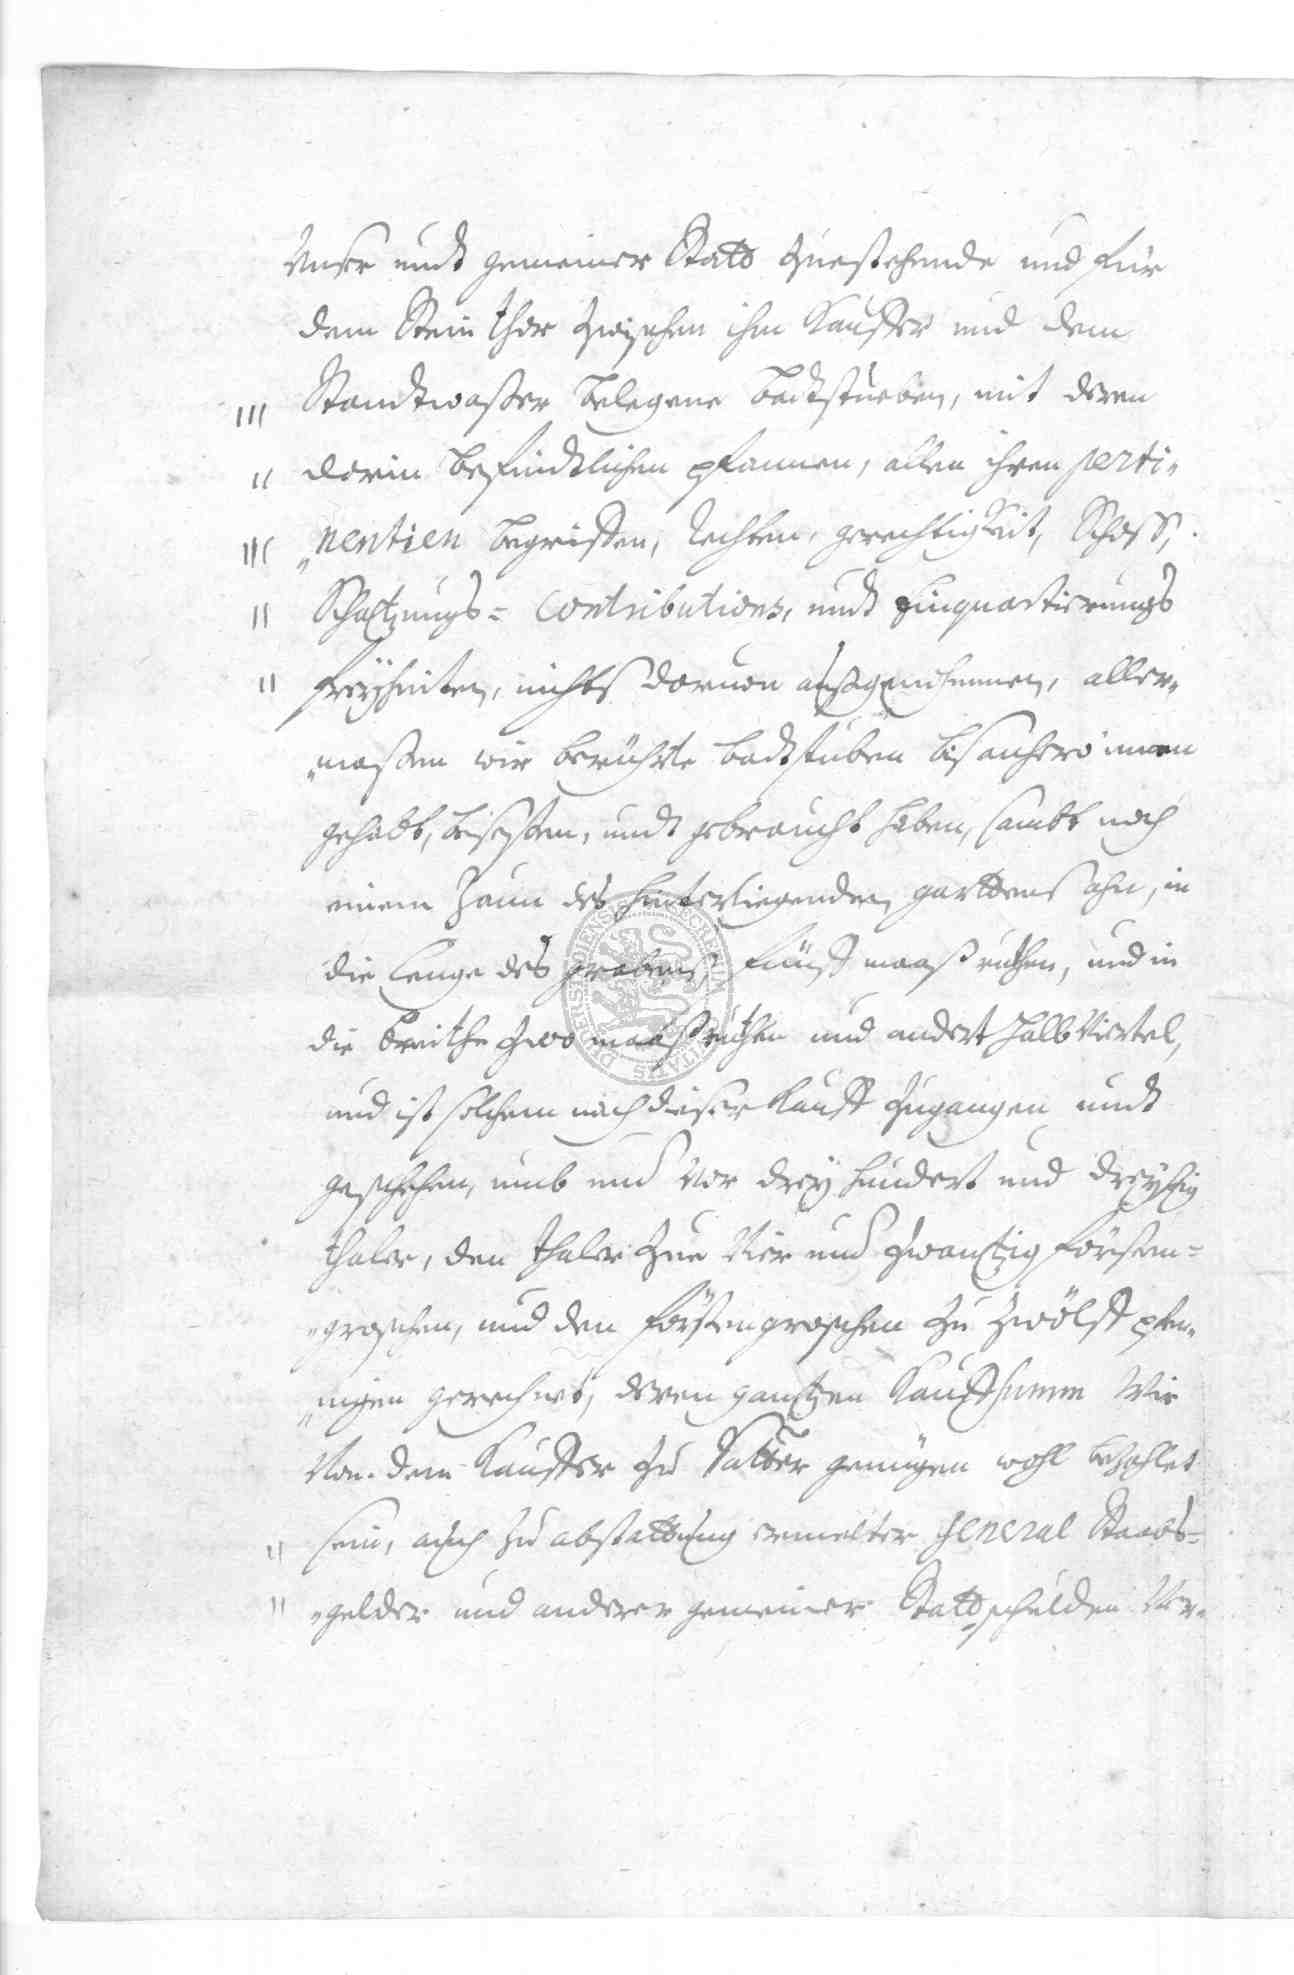 Unser undt gemeiner Stadt zuestehende und für
dem Stein thor zwischen ihm Kauffer und dem
Standtwaßer belegene badtstueben, mit deren
darin befindtlichen pfannen, allen ihren perti-
nentien begriffen, rechten, gerechtigkeit, Schoss,
Schatzungs- Contributions, undt Einquartierungs
freyheiten, nichts daruon außgenohmmen, aller-
maßen wir berührte badtstuben bishanhero innen
gehabt, beseßen, undt gebraucht haben, sambt noch
einem Zaun des hinterliegenden garttens ahn, in
die lenge des grabens, fünff maaß ruhten, und in
die breithe zwo maaß ruhten und andert halb Viertel,
und ist solchem nach dieser Kauff zugangen undt
geschehen, umb und vor drey hundert und dreyßig
thaler, den thaler zue Vier und zwantzig fürsten-
groschen, und den fürstengroschen zu zwölff pfen-
nigen gerechnet, deren gantzen Kauffsumm Wir
Von dem Kauffer zu Satter genügen wohl bezahlet
sein, auch zu abstattung ermelter General Staabs-
gelder und anderer gemeiner Stadt schulden Ver-